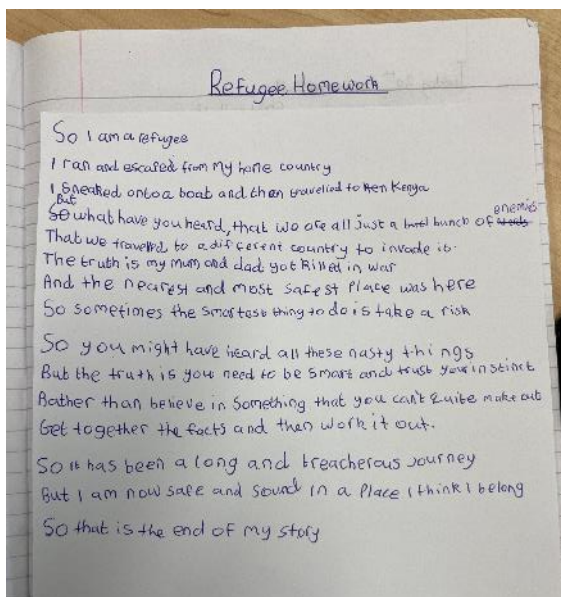 Refugee Homework
So I am a refugee
I ran and escaped from my home country
I sneaked onto a boat and then travelled to Kenya
But what have you heard, that we are all just a bunch of enemies
That we travelled to a different country to invade it.
The truth is my mum and dad got killed in war
And the nearest and most safest place was here
So sometimes the smartest thing to do is take a risk
So you might have heard all these nasty things
But the truth is you need to be smart and trust your instinct
Rather than believe in something that you can't quite make out
Get together the facts and then work it out.
So it has been a long and treacherous journey
But I am now safe and sound in a place I think I belong
So that is the end of my story